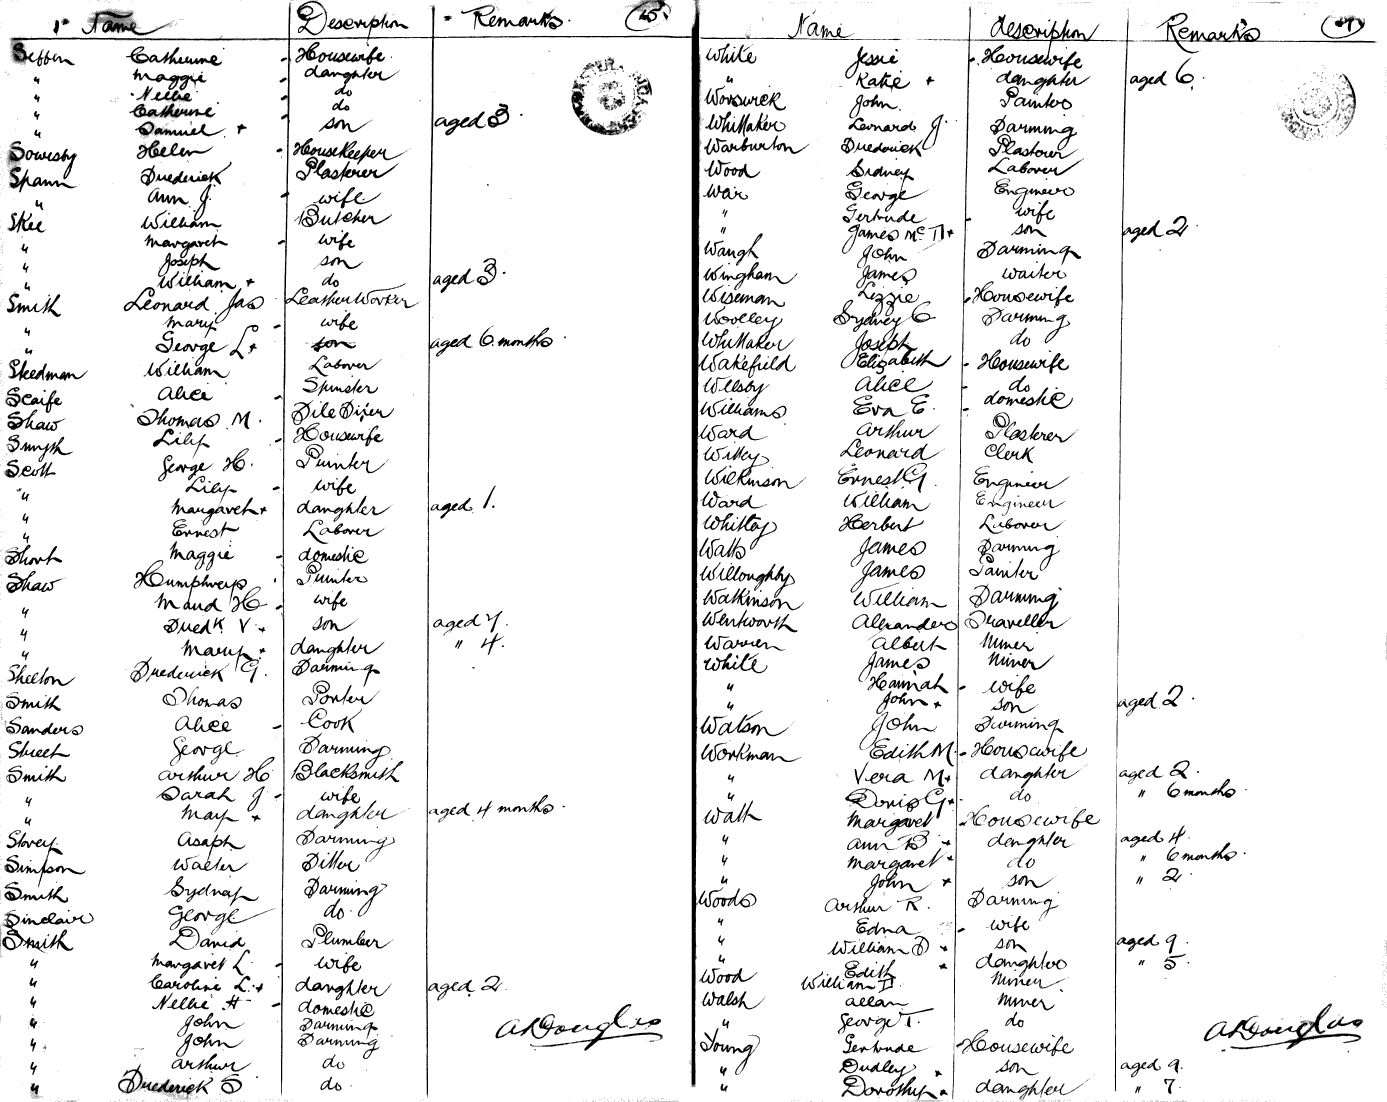 Name Description Remarks
" Catherine - Housewife
" Maggie - daughter
" Nellie - do
" Catherine - do
" Samuel + son aged 3
Sowesby Helen - Housekeeper
Spann Frederick Plasterer
" Ann J. - wife
Skee William Butcher
" Margaret - wife
" Joseph son
" William + do aged 3.
Smith Leonard Jas Leather Worker
" Mary - wife
" George L + son aged 6 months
Steedman William Labourer
Scaife Alice - Spinster
Shaw Thomas M. Tile Fixer
Smyth Lily - Housewife
Scott George H. Painter
" Lily - wife
" Margaret + daughter aged 1.
" Ernest Labourer
Short Maggie - domestic
Shaw Humphreys Painter
" Maud H - wife
" Fredk V. + son aged 7.
" Mary + daughter " 4.
Shelton Frederick G. Farming
Smith Thomas Porter
Sanders Alice - Cook
Street George Farming
Smith Arthur H Blacksmith
" Sarah J. - wife
" May + daughter aged 4 months.
Storey Asaph Farming
Simpson Walter Fitter
Smith Sydney Farming
Sinclair George do.
Smith David Plumber
" Margaret L. - wife
" Caroline L. + daughter aged 2
" Nellie H - domestic
" John Farming
" John Farming
" Arthur do
" Frederick S do.
A R Douglas
Name description Remarks
White Jessie - Housewife
" Katie + daughter aged 6.
Worswick John. Painter
Whittaker Leonard J. Farming
Warburton Frederick Plasterer
Wood Sidney Labourer
War George Engineer
" Gertrude - wife
" James Mc D + son aged 2
Waugh John Farming
Wingham James waiter
Wiseman Lizzie - Housewife
Woolley Sydney C Farming
Whittaker Joseph do
Wakefield Elizabeth - Housewife
Willsby Alice - do
Williams Eva E. - domestic
Ward Arthur Plasterer
Witty Leonard Clerk
Wilkinson Ernest G. Engineer
Ward William Engineer
Whittay Herbert Labourer
Watts James Farming
Willoughby James Painter
Watkinson William Farming
Wentworth Alexander Traveller
Warren Albert Miner
White James Miner
" Hannah - wife
" John + son aged 2.
Watson John Farming
Workman Edith M. - Housewife
" Vera M + daughter aged 2.
" Doris G + do " 6 months
Watt Margaret Housewife
" Ann B + daughter aged 4.
" Margaret + do " 6 months.
" John + son " 2
Woods Arthur R. Farming
" Edna - wife
" William D + son aged 9.
" Edith + daughter " 5
Wood William D. Miner
Walsh Allan Miner
" George T. do
Young Gertrude - Housewife
" Dudley + son aged 9.
" Dorothy + daughter " 7.
A R Douglas